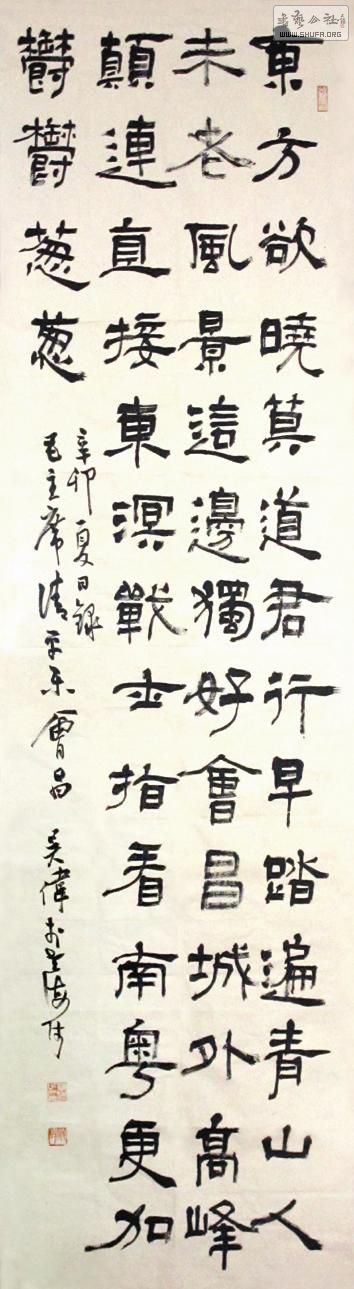 東方欲曉莫道君行早踏遍青山人
未老風景這邊獨好會昌城外高峰
顛連直接東溟戰士指看南粵更加
鬱鬱葱葱
辛卯夏日錄
毛主席清平乐會昌 吴偉於上海
書藝公社
WWW.SHUFA.ORG